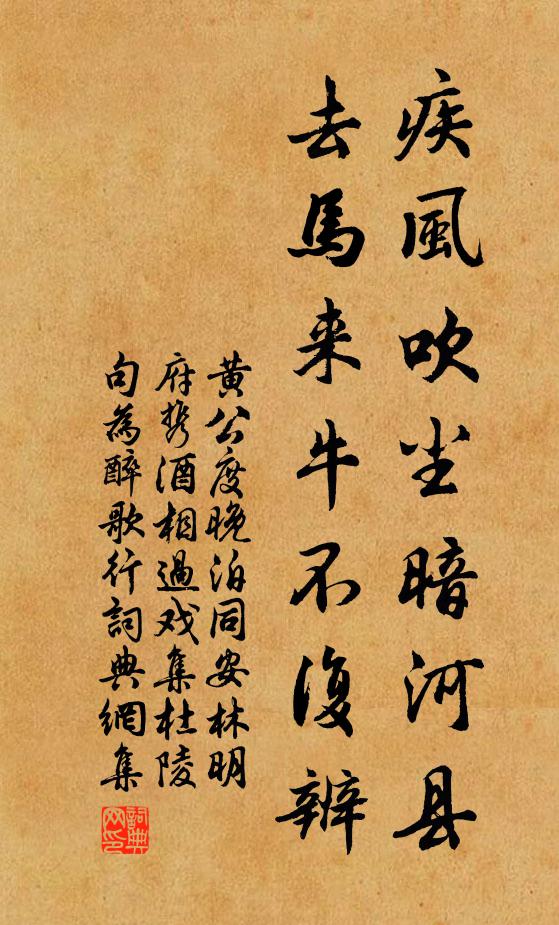 疾風吹尘暗河县
去馬来牛不復辨
黄公度晚泊同安林明
府携酒相過戏集杜陵
句為醉歌行詞典網集
詞典网印